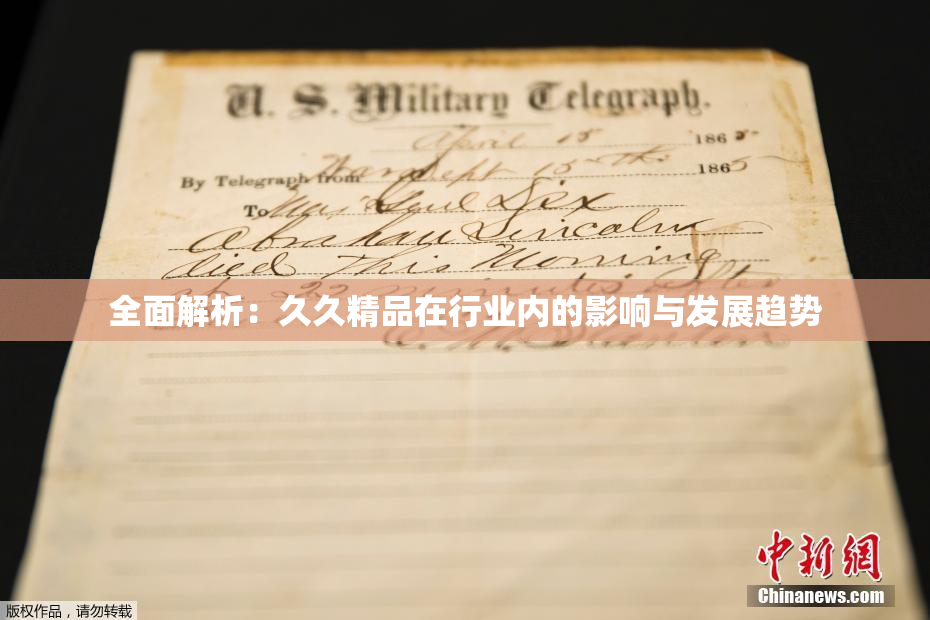 U. S. Military Telegraph.
April 15 1865
By Telegraph from War Dept 15th 1865
To Maj Genl Dix
Abraham Lincoln
died This Morning
at 22 minutes after
全面解析：久久精品在行业内的影响与发展趋势
E. M. Stanton
中新网
Chinanews.com
版权作品，请勿转载